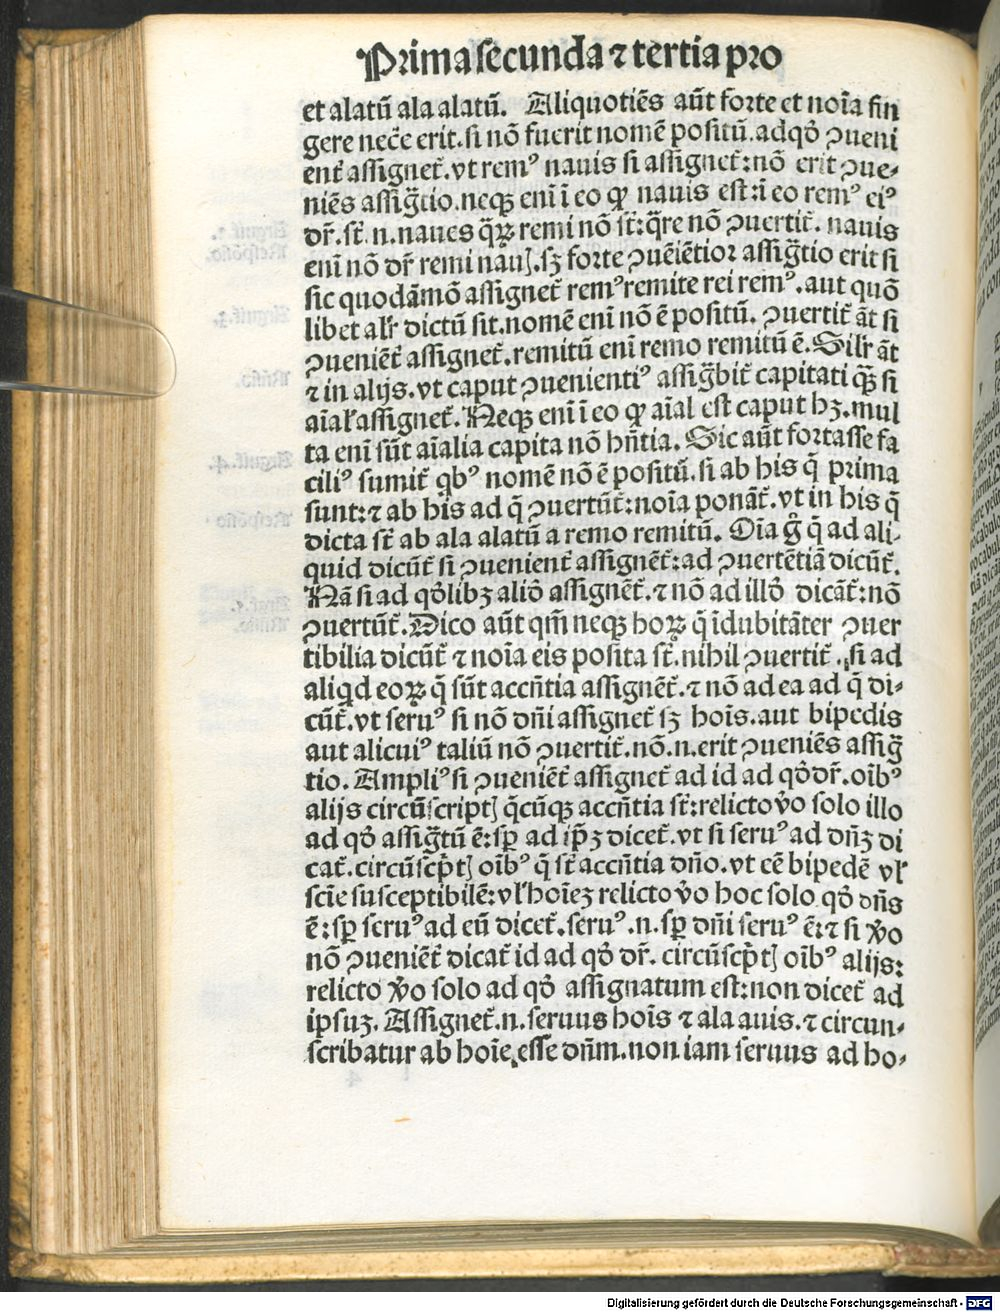 Prima secunda ⁊ tertia pro
et alatū ala alatū. Aliquotiēs aūt forte et noīa fin
gere necē erit. si nō fuerit nomē positū. ad qđ ꝯueni
enť assigneť. vt remꝰ nauis si assigneť: nō erit ꝯue-
niēs assig̃tio. neqꝫ eni ī eo ꝙ nauis est: ī eo remꝰ eiꝰ
dr̄. sť .n. naues q̄ꝝ remi nō sť: q̄re nō ꝯuertiť. nauis
eni nō dr̄ remi nauꝭ. sꝫ forte ꝯuēiētior assig̃tio erit si
sic quodāmō assigneť remꝰ remite rei remꝰ. aut quō
libet alr̄ dictū sit. nomē eni nō ē positū. ꝯuertiť āt si
ꝯueniēť assigneť. remitū eni remo remitū ē. Silr̄ āt
⁊ in alijs. vt caput ꝯuenientiꝰ assig̃biť capitati q̄ꝫ si
aīal' assigneť. Neqꝫ eni ī eo ꝙ aīal est caput hꝫ. mul
ta eni sūt aīalia capita nō hn̄tia. Sic aūt fortasse fa
ciliꝰ sumiť qbꝰ nomē nō ē positū. si ab his q̄ prima
sunt: ⁊ ab his ad q̄ ꝯuertūť: noīa ponāť. vt in his q̄
dicta sť ab ala alatū a remo remitū. Oīa g̊ q̄ ad ali-
quid dicūť si ꝯuenienť assignēť: ad ꝯuertētiā dicūť.
Nā si ad qđlibꝫ aliđ assignēť. ⁊ nō ad illđ dicāť: nō
ꝯuertūť. Dico aūt qm̄ neqꝫ hoꝝ q̄ īdubitāter ꝯuer
tibilia dicūť ⁊ noīa eis posita sť. nihil ꝯuertiť. si ad
aliqd eoꝝ q̄ sūt accn̄tia assignēť. ⁊ nō ad ea ad q̄ di-
cūť. vt seruꝰ si nō dn̄i assigneť sꝫ hoīs. aut bipedis
aut alicuiꝰ taliū nō ꝯuertiť. nō .n. erit ꝯueniēs assig̃
tio. Ampliꝰ si ꝯueniēť assigneť ad id ad qđ dr̄. oībꝰ
alijs circūscriptꝭ q̄cūqꝫ accn̄tia sť: relicto v̊o solo illo
ad qđ assig̃tū ē: sp̄ ad ip̄ꝫ diceť. vt si seruꝰ ad dn̄ꝫ di
cať. circūscp̄tꝭ oībꝰ q̄ sť accn̄tia dn̄o. vt eē bipedē vl'
scīe susceptibilē: vl' hoīeꝫ relicto v̊o hoc solo qđ dn̄s
ē: sp̄ seruꝰ ad eū diceť. seruꝰ .n. sp̄ dn̄i seruꝰ ē: ⁊ si v̊o
nō ꝯueniēť dicať id ad qđ dr̄. circūscp̄tꝭ oībꝰ alijs:
relicto v̊o solo ad qđ assignatum est: non diceť ad
ipsuꝫ. Assigneť .n. seruus hoīs ⁊ ala auis. ⁊ circun-
scribatur ab hoīe esse dn̄m. non iam seruus ad ho-
Digitalisierung gefördert durch die Deutsche Forschungsgemeinschaft - DFG